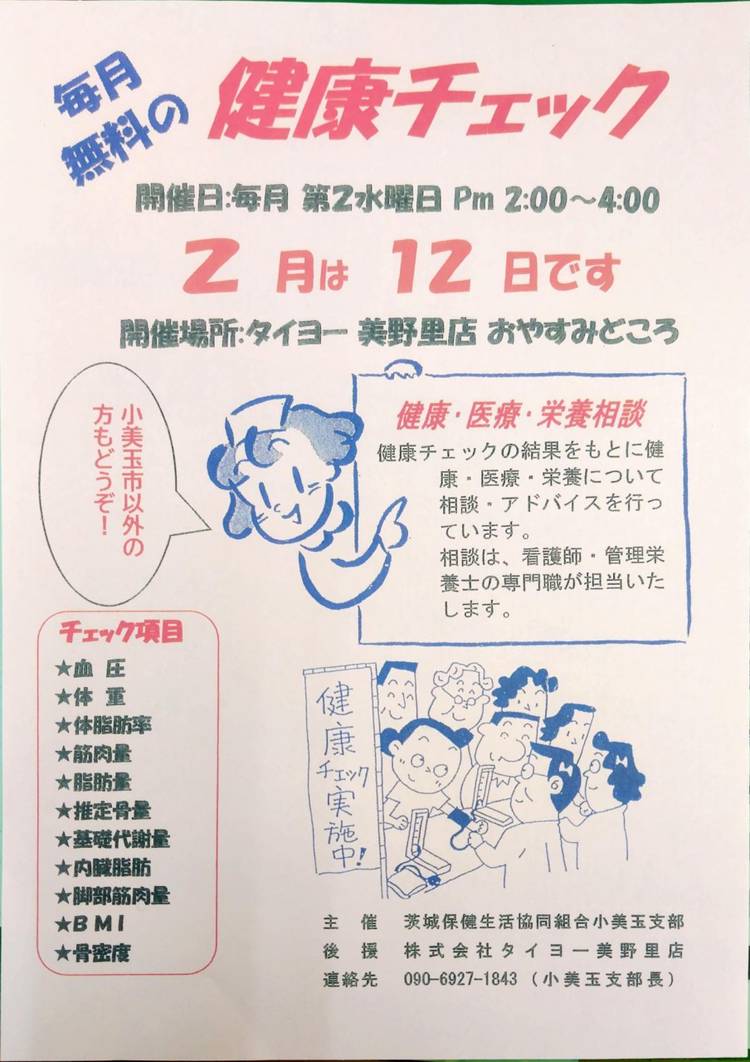 毎月
無料の
健康チェック
開催日:毎月 第2水曜日 Pm 2:00～4:00
2 月は 12 日です
開催場所:タイヨー 美野里店 おやすみどころ
小美玉市以外の
方もどうぞ！
健康・医療・栄養相談
健康チェックの結果をもとに健
康・医療・栄養について
相談・アドバイスを行っ
ています。
相談は、看護師・管理栄
養士の専門職が担当いた
します。
チェック項目
★血 圧
★体 重
★体脂肪率
★筋肉量
★脂肪量
★推定骨量
★基礎代謝量
★内臓脂肪
★脚部筋肉量
★BMI
★骨密度
健康チェック実施中!
主 催 茨城保健生活協同組合小美玉支部
後 援 株式会社タイヨー美野里店
連絡先 090-6927-1843 （小美玉支部長）